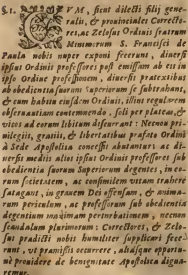 §1. CVM, sicut dilecti filij gene-
ralis, & prouinciales Correcto-
res, ac Zelosi Ordinis fratrum
Minimorum S. Francisci de
Paula nobis nuper exponi fecerunt, diuersi
ipsius Ordinis professores post emissam ab eis in
ipso Ordine professionem, diuersis pratextibus
ab obedientia suorum superiorum se subtrahant,
& cum habitu eiusdem Ordinis, illius regularem
obseruantiam contemnendo, soli per plateas, &
alias ad eorum libitum discurrant: Necnon pri-
uilegijs, gratijs, & libertatibus prafato Ordini
à Sede Apostolica concessis abutantur ac di-
uersis medijs alios ipsius Ordinis professores sub
obedientia suorum Superiorum degentes, in eo-
rum societatem, ac consimilem vitam trahere
satagant, in grauem Dei offensam, & anima-
rum periculum, ac professorum sub obedientia
degentium maximam perturbationem, necnon
scandalum plurimorum: Correctores, & Zelo-
si pradicti nobis humiliter supplicari fece-
runt, vt pramissis occurrere, aliasque opportu-
nè prouidere de benignitate Apostolica digna-
remur.